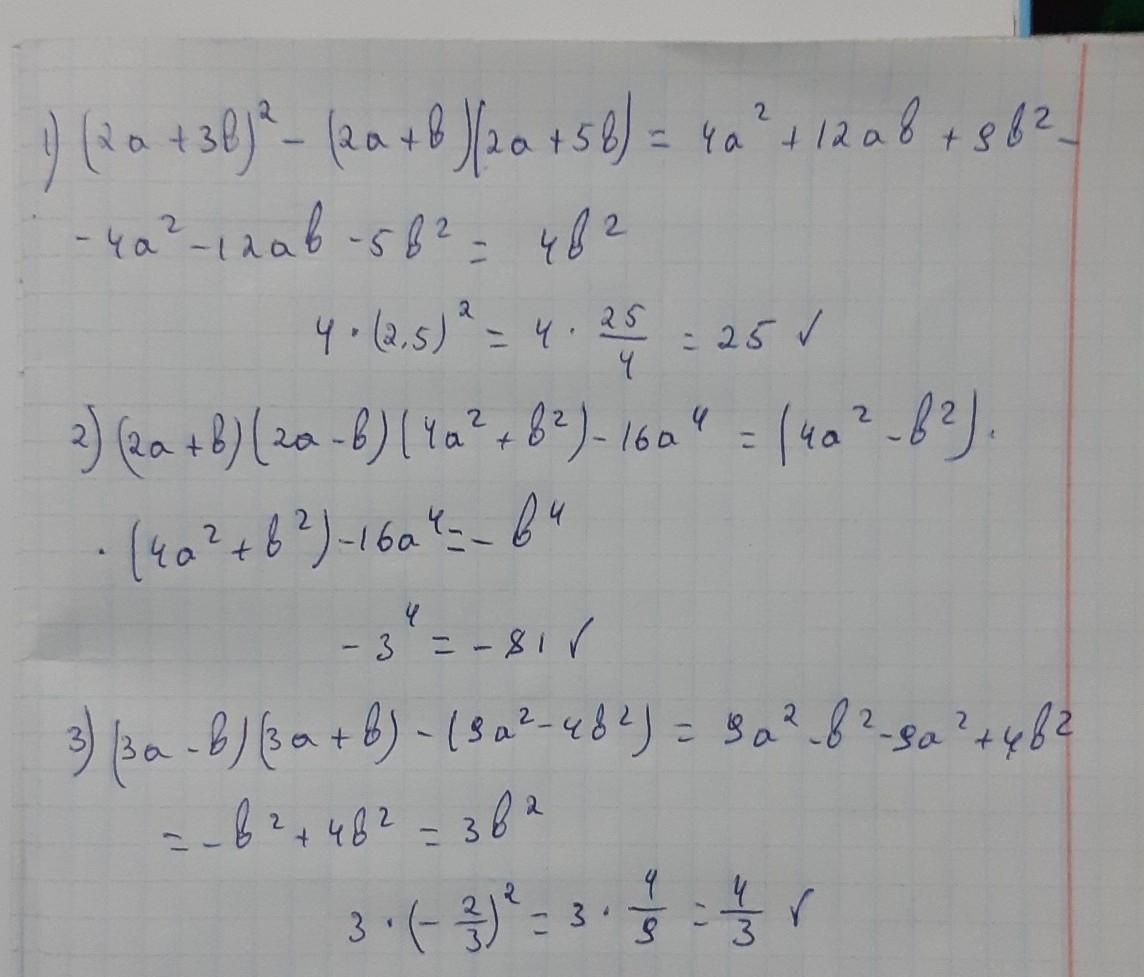 1) (2a + 3b)² - (2a + b)(2a + 5b) = 4a² + 12ab + 9b² -
- 4a² - 12ab - 5b² = 4b²
4 · (2,5)² = 4 · 25/4 = 25 ✓
2) (2a + b)(2a - b)(4a² + b²) - 16a⁴ = (4a² - b²) ·
· (4a² + b²) - 16a⁴ = - b⁴
- 3⁴ = - 81 ✓
3) (3a - b)(3a + b) - (9a² - 4b²) = 9a² - b² - 9a² + 4b²
= - b² + 4b² = 3b²
3 · (- 2/3)² = 3 · 4/9 = 4/3 ✓